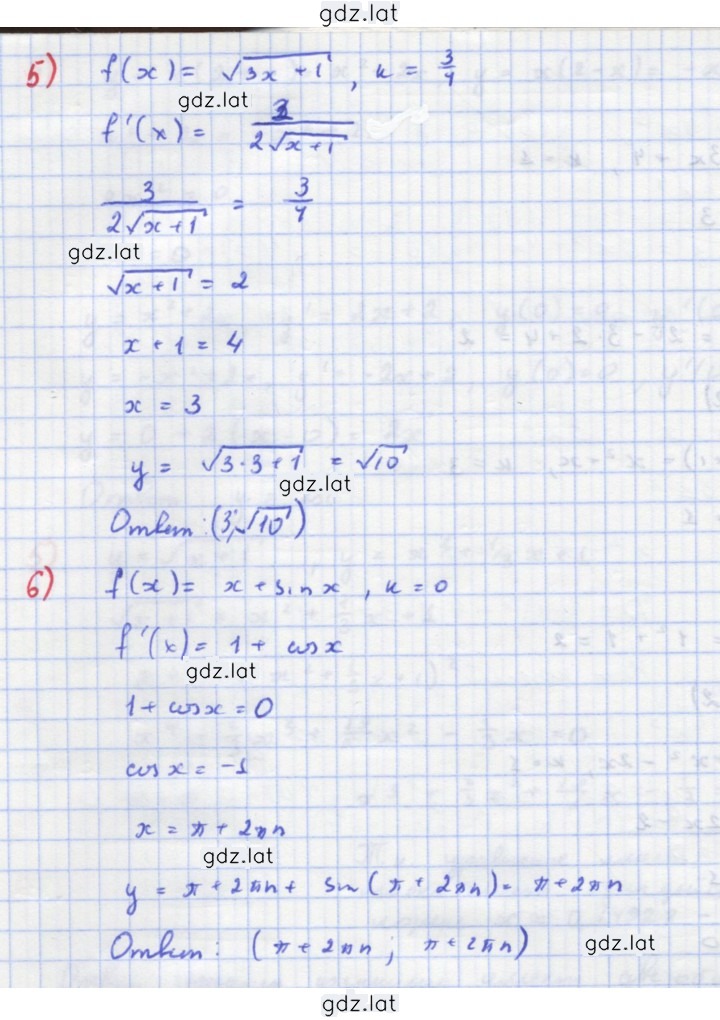 gdz.lat
5) f(x) = √(3x + 1), к = 3/4
gdz.lat
f'(x) = 3/(2√(x+1))
3/(2√(x+1)) = 3/4
gdz.lat
√(x+1) = 2
x + 1 = 4
x = 3
y = √(3·3+1) = √10
gdz.lat
Ответ: (3; √10)
6) f(x) = x + sin x, к = 0
f'(x) = 1 + cos x
gdz.lat
1 + cos x = 0
cos x = -1
x = π + 2πn
gdz.lat
y = π + 2πn + sin(π + 2πn) = π + 2πn
Ответ: (π + 2πn; π + 2πn)
gdz.lat
gdz.lat